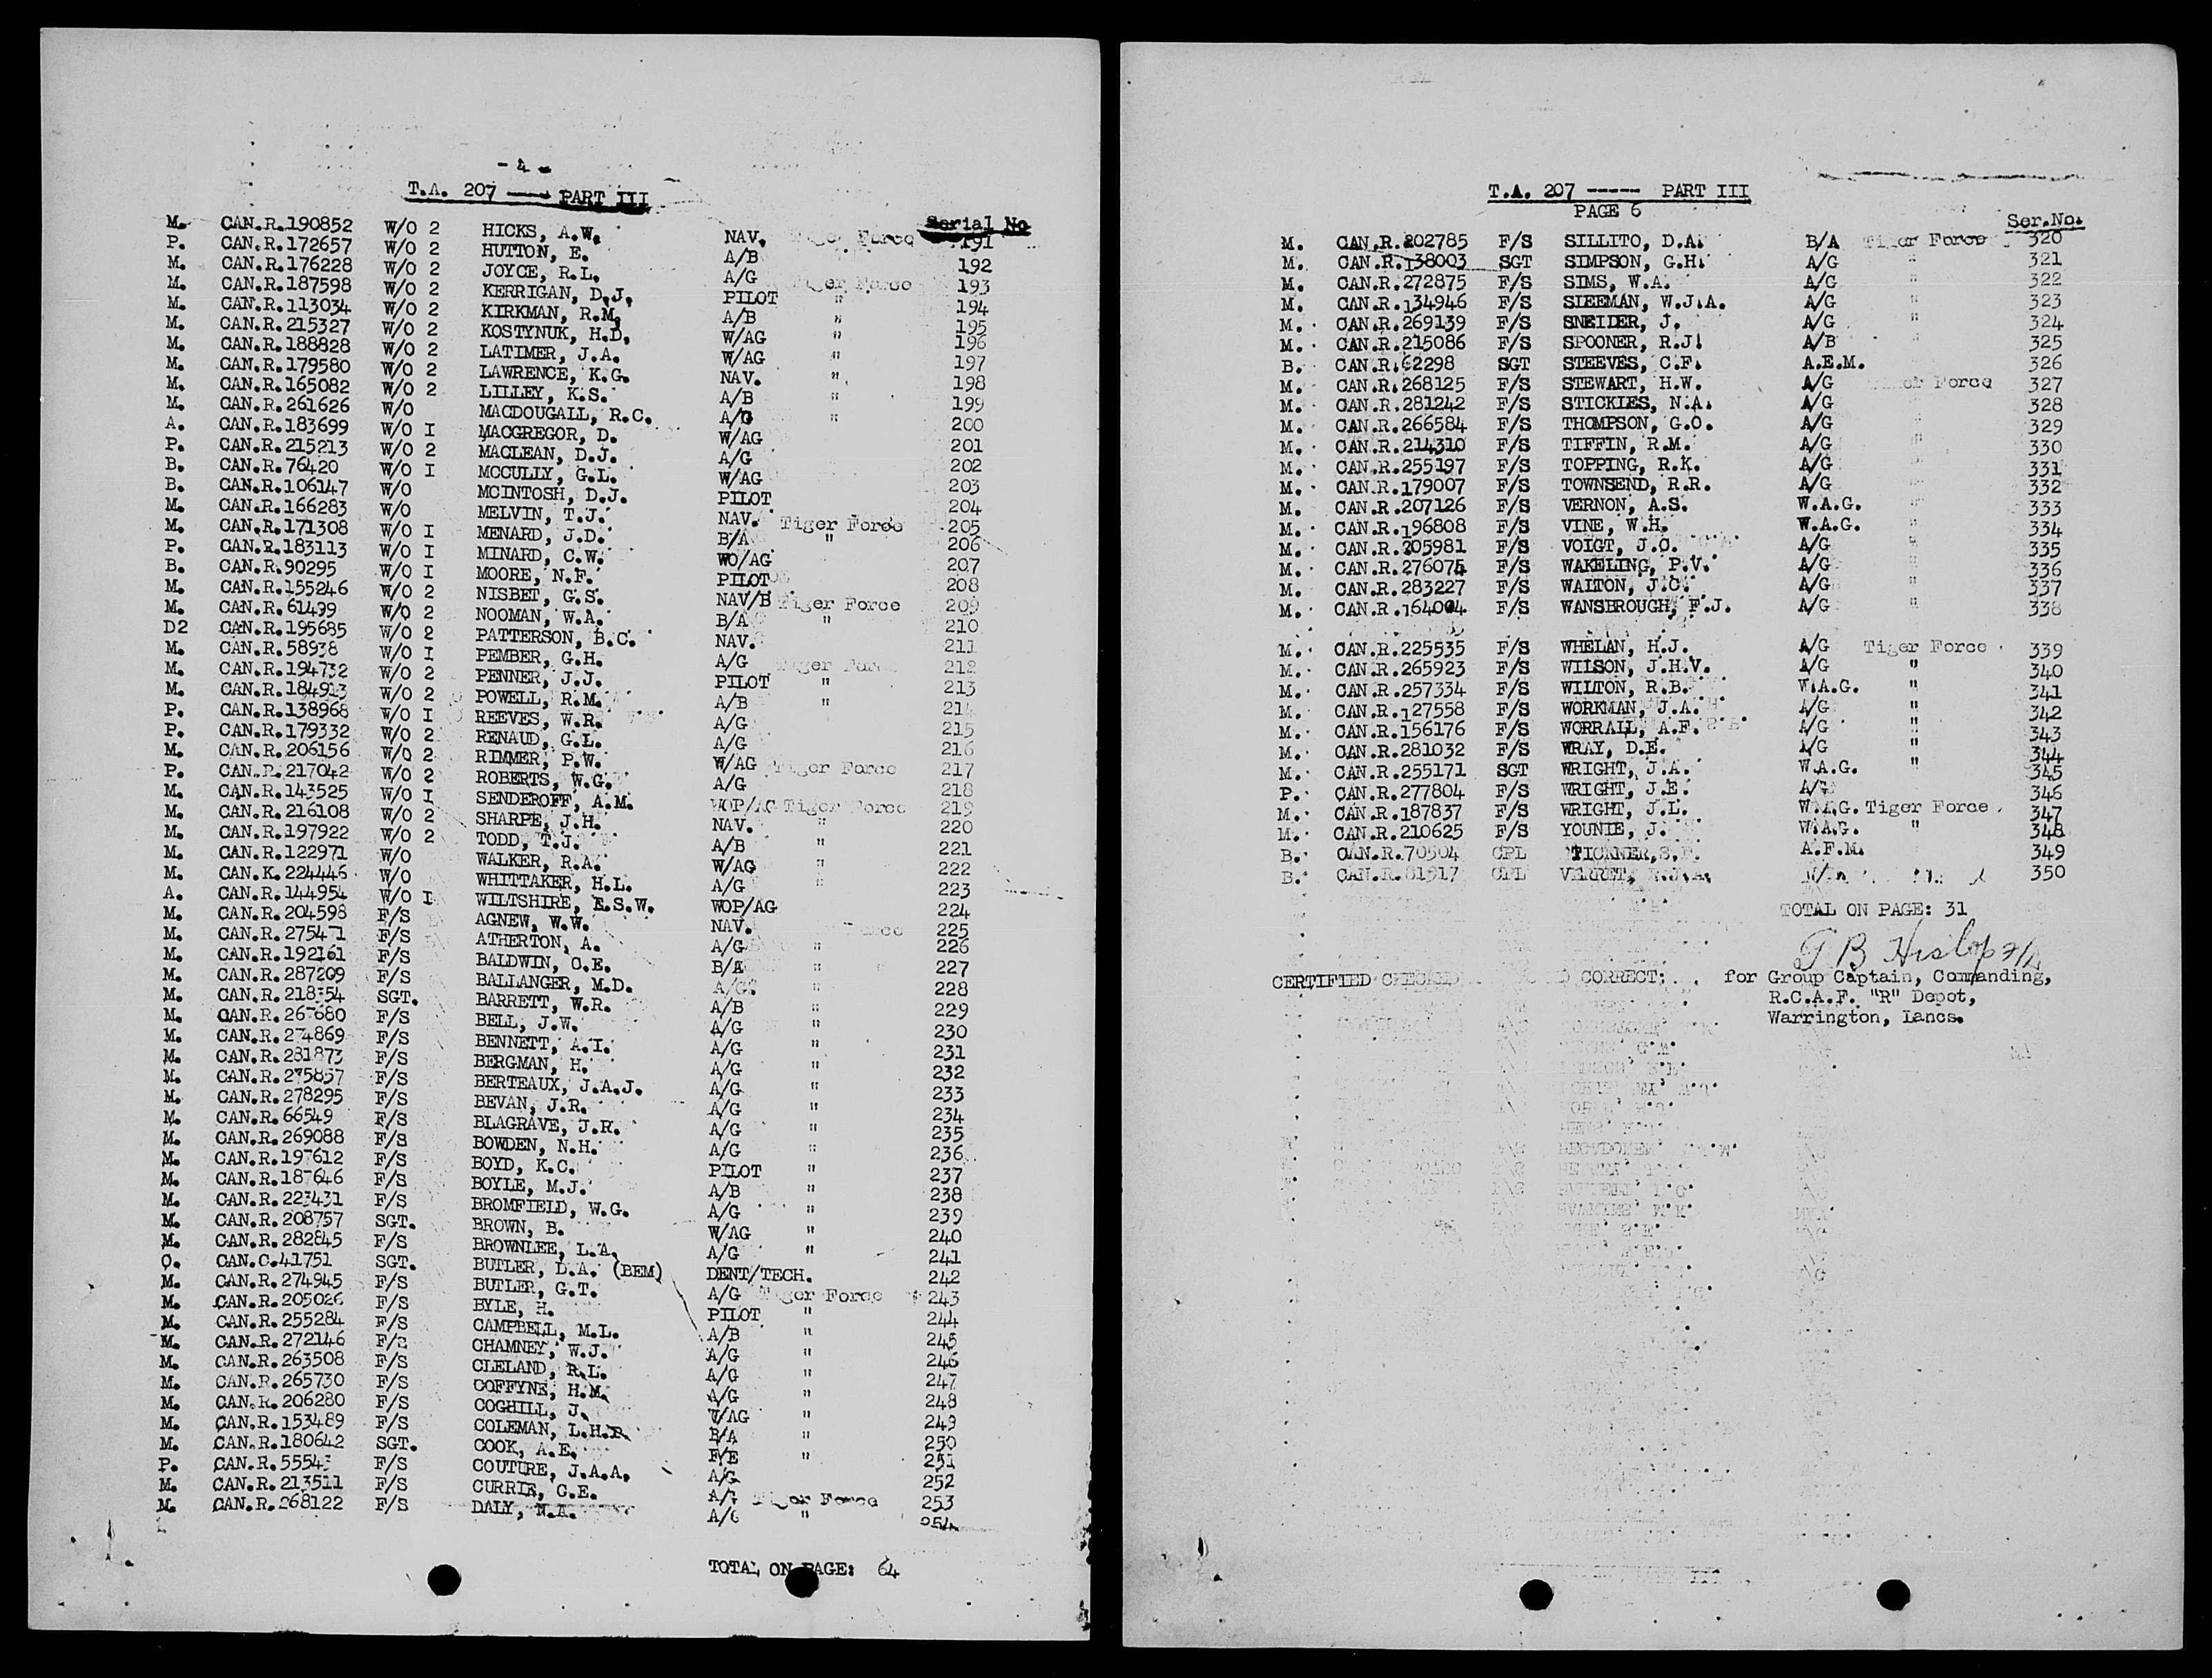 - 4 -
T.A. 207 ---- PART III
Serial No
M. CAN.R.190852 W/O 2 HICKS, A.W. NAV. Tiger Force 191
P. CAN.R.172657 W/O 2 HUTTON, E. A/B 192
M. CAN.R.176228 W/O 2 JOYCE, R.L. A/G Tiger Force 193
M. CAN.R.187598 W/O 2 KERRIGAN, D.J. PILOT " 194
M. CAN.R.113034 W/O 2 KIRKMAN, R.M. A/B " 195
M. CAN.R.215327 W/O 2 KOSTYNUK, H.D. W/AG " 196
M. CAN.R.188828 W/O 2 LATIMER, J.A. W/AG " 197
M. CAN.R.179580 W/O 2 LAWRENCE, K.G. NAV. " 198
M. CAN.R.165082 W/O 2 LILLEY, K.S. A/B " 199
M. CAN.R.261626 W/O MACDOUGALL, R.C. A/G " 200
A. CAN.R.183699 W/O I MACGREGOR, D. W/AG 201
P. CAN.R.215213 W/O 2 MACLEAN, D.J. A/G 202
B. CAN.R.76420 W/O I MCCULLY, G.L. W/AG 203
B. CAN.R.106147 W/O MCINTOSH, D.J. PILOT 204
M. CAN.R.166283 W/O MELVIN, T.J. NAV. Tiger Force 205
M. CAN.R.171308 W/O I MENARD, J.D. B/A " 206
P. CAN.R.183113 W/O I MINARD, C.W. WO/AG 207
B. CAN.R.90295 W/O I MOORE, N.F. PILOT 208
M. CAN.R.155246 W/O 2 NISBET, G.S. NAV/B Tiger Force 209
M. CAN.R.61499 W/O 2 NOOMAN, W.A. B/A " 210
D2 CAN.R.195685 W/O 2 PATTERSON, B.C. NAV. 211
M. CAN.R.58938 W/O I PEMBER, G.H. A/G Tiger 212
M. CAN.R.194732 W/O 2 PENNER, J.J. PILOT " 213
M. CAN.R.184913 W/O 2 POWELL, R.M. A/B " 214
P. CAN.R.138968 W/O I REEVES, W.R. A/G 215
P. CAN.R.179332 W/O 2 RENAUD, G.L. A/G 216
M. CAN.R.206156 W/O 2 RIMMER, P.W. W/AG Tiger Force 217
P. CAN.R.217042 W/O 2 ROBERTS, W.G. A/G 218
M. CAN.R.143525 W/O I SENDEROFF, A.M. WOP/AG Tiger Force 219
M. CAN.R.216108 W/O 2 SHARPE, J.H. NAV. " 220
M. CAN.R.197922 W/O 2 TODD, T.J. A/B " 221
M. CAN.R.122971 W/O WALKER, R.A. W/AG " 222
M. CAN.K.224446 W/O WHITTAKER, H.L. A/G " 223
A. CAN.R.144954 W/O I WILTSHIRE, E.S.W. WOP/AG 224
M. CAN.R.204598 F/S AGNEW, W.W. NAV. 225
M. CAN.R. F/S ATHERTON, A. A/G " 226
M. CAN.R.192161 F/S BALDWIN, C.E. B/A " 227
M. CAN.R.287209 F/S BALLANGER, M.D. A/G " 228
M. CAN.R. SGT. BARRETT, W.R. A/B " 229
M. CAN.R. F/S BELL, J.W. A/G " 230
M. CAN.R. F/S BENNETT, A.I. A/G " 231
M. CAN.R.281873 F/S BERGMAN, H. A/G " 232
M. CAN.R.275857 F/S BERTEAUX, J.A.J. A/G " 233
M. CAN.R.278295 F/S BEVAN, J.R. A/G " 234
M. CAN.R.66549 F/S BLAGRAVE, J.R. A/G " 235
M. CAN.R.269088 F/S BOWDEN, N.H. A/G " 236
M. CAN.R.197612 F/S BOYD, K.C. PILOT " 237
M. CAN.R.187646 F/S BOYLE, M.J. A/B " 238
M. CAN.R.223431 F/S BROMFIELD, W.G. A/G " 239
M. CAN.R.208757 SGT. BROWN, B. W/AG " 240
M. CAN.R.282845 F/S BROWNLEE, L.A. A/G " 241
O. CAN.C.41751 SGT. BUTLER, D.A. (BEM) DENT/TECH. 242
M. CAN.R.274945 F/S BUTLER, G.T. A/G Tiger Force 243
M. CAN.R.205026 F/S BYLE, H. PILOT " 244
M. CAN.R.255284 F/S CAMPBELL, M.L. A/B " 245
M. CAN.R.272146 F/S CHAMNEY, W.J. A/G " 246
M. CAN.R.263508 F/S CLELAND, R.L. A/G " 247
M. CAN.R.265730 F/S COFFYNE, H.M. A/G " 248
M. CAN.R.206280 F/S COGHILL, J. W/AG " 249
M. CAN.R.153489 F/S COLEMAN, L.H.P. B/A " 250
M. CAN.R.180642 SGT. COOK, A.E. F/E " 251
P. CAN.R. F/S COUTURE, J.A.A. A/G 252
M. CAN.R.213511 F/S CURRIE, G.E. A/G Tiger Force 253
M. CAN.R.268122 F/S DALY, N.A. A/G " 254
TOTAL ON PAGE: 64
T.A. 207 ----- PART III
PAGE 6
Ser.No.
M. CAN.R.202785 F/S SILLITO, D.A. B/A Tiger Force 320
M. CAN.R.138003 SGT SIMPSON, G.H. A/G " 321
M. CAN.R.272875 F/S SIMS, W.A. A/G " 322
M. CAN.R.134946 F/S SLEEMAN, W.J.A. A/G " 323
M. CAN.R.269139 F/S SNEIDER, J. A/G " 324
M. CAN.R.215086 F/S SPOONER, R.J. A/B " 325
B. CAN.R.62298 SGT STEEVES, C.F. A.E.M. 326
M. CAN.R.268125 F/S STEWART, H.W. A/G Tiger Force 327
M. CAN.R.281242 F/S STICKLES, N.A. A/G " 328
M. CAN.R.266584 F/S THOMPSON, G.O. A/G " 329
M. CAN.R.214310 F/S TIFFIN, R.M. A/G " 330
M. CAN.R.255197 F/S TOPPING, R.K. A/G " 331
M. CAN.R.179007 F/S TOWNSEND, R.R. A/G " 332
M. CAN.R.207126 F/S VERNON, A.S. W.A.G. " 333
M. CAN.R.196808 F/S VINE, W.H. W.A.G. " 334
M. CAN.R.205981 F/S VOIGT, J.O. A/G " 335
M. CAN.R.276074 F/S WAKELING, P.V. A/G " 336
M. CAN.R.283227 F/S WALTON, J.C. A/G " 337
M. CAN.R.164004 F/S WANSBROUGH, F.J. A/G " 338
M. CAN.R.225535 F/S WHELAN, H.J. A/G Tiger Force 339
M. CAN.R.265923 F/S WILSON, J.H.V. A/G " 340
M. CAN.R.257334 F/S WILTON, R.B. W.A.G. " 341
M. CAN.R.127558 F/S WORKMAN, J.A. A/G " 342
M. CAN.R.156176 F/S WORRALL, A.F. A/G " 343
M. CAN.R.281032 F/S WRAY, D.E. A/G " 344
M. CAN.R.255171 SGT WRIGHT, J.A. W.A.G. " 345
P. CAN.R.277804 F/S WRIGHT, J.E. A/G 346
M. CAN.R.187837 F/S WRIGHT, J.L. W.A.G. Tiger Force 347
M. CAN.R.210625 F/S YOUNIE, J. W.A.G. " 348
B. CAN.R.70504 CPL TICKNER, S. A.F.M. 349
B. CAN.R.81917 CPL VERRET, 350
TOTAL ON PAGE: 31
J B Hislop
CERTIFIED CHECKED CORRECT: for Group Captain, Commanding,
R.C.A.F. "R" Depot,
Warrington, Lancs.